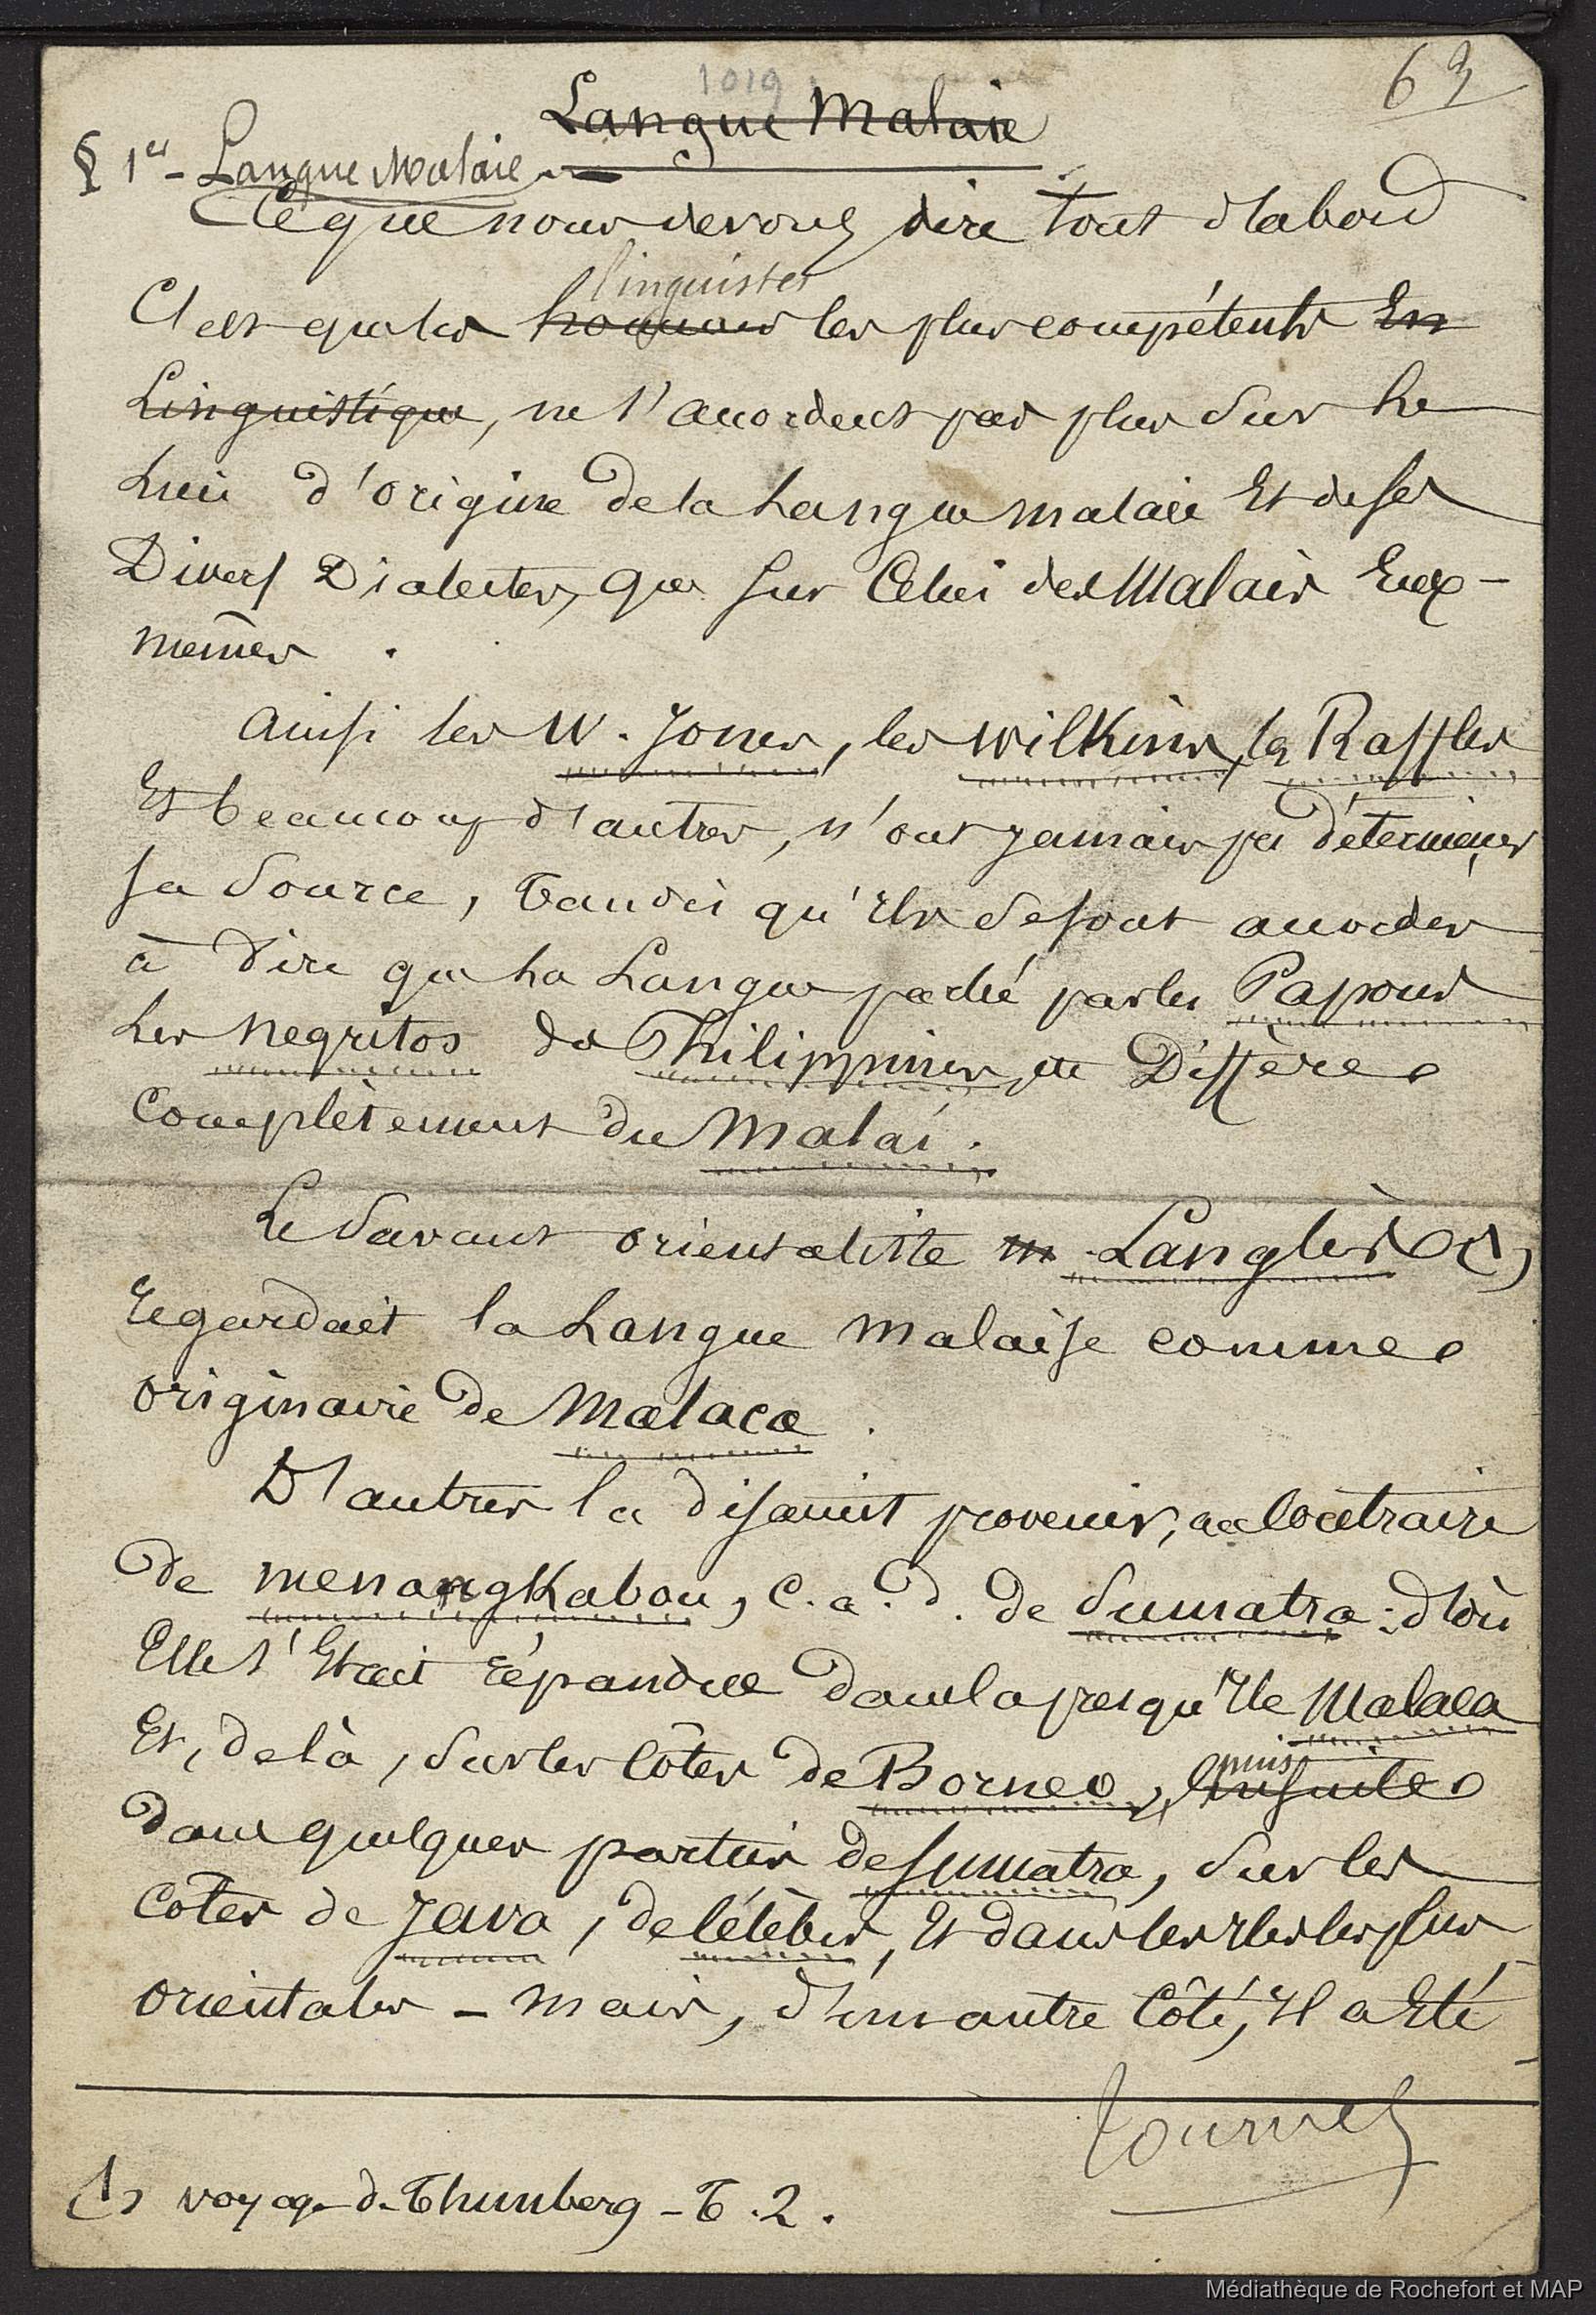 1019
63
Langue Malaie
§ 1er - Langue Malaie
Ce que nous devons dire tout d'abord
linguistes
C'est que les hommes les plus compétents En
Linguistique, ne s'accordent pas plus sur Le
Lieu d'origine de la Langue malaie Et de ses
Divers Dialectes, que sur Celui des Malais Eux-
mêmes.
Ainsi les W. Jones, les Wilkins, les Raffles
Et beaucoup d'autres, n'ont jamais pu déterminer
sa Source, Tandis qu'Ils se sont accordés
à Dire que La Langue parlé par les Papous
Les Negritos des Philippines, Diffère
Complètement du Malai.
Le Savant orientaliste m Langlès (1),
regardait la Langue malaise comme
originaire de Malaca.
D'autres la disaient provenir, au Contraire
de menangKabou, c.a.d. de Sumatra : d'où
Elle s'Etait répandue dans la presqu'Ile Malaca
Et, de là, sur les Côtes de Borneo, Ensuite
puis
dans quelques parties de Sumatra, sur les
Côtes de Java, de Célèbes, Et dans les Iles les plus
orientales - mais, d'un autre Côté, Il a Eté
tournez
(1) voyage de Thunberg - T. 2.
Médiathèque de Rochefort et MAP